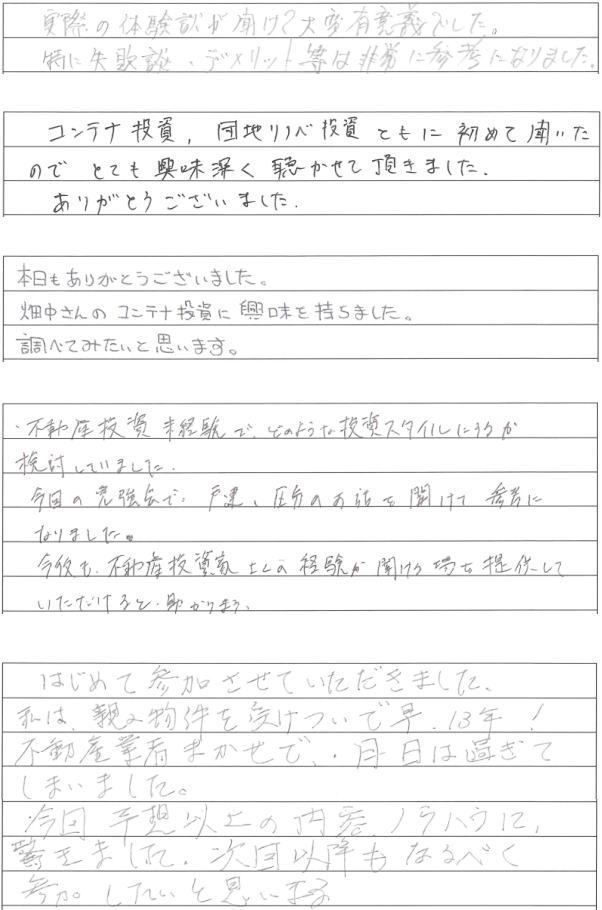 実際の体験談が聞けて大変有意義でした。
特に失敗談、デメリット等は非常に参考になりました。
コンテナ投資, 団地リノベ投資ともに初めて聞いた
のでとても興味深く聴かせて頂きました.
ありがとうございました.
本日もありがとうございました。
畑中さんのコンテナ投資に興味を持ちました。
調べてみたいと思います。
・不動産投資未経験で、どのような投資スタイルにするか
検討していました.
今回の勉強会で、戸建、区分のお話を聞けて参考に
なりました。
今後も、不動産投資家さんの経験が聞ける場を提供して
いただけると、助かります、
はじめて参加させていただきました、
私は、親の物件を受けついで早、13年!
不動産業者まかせで、月日は過ぎて
しまいました。
今回 予想以上の内容、ノウハウに、
驚きました、次回以降もなるべく
参加したいと思います